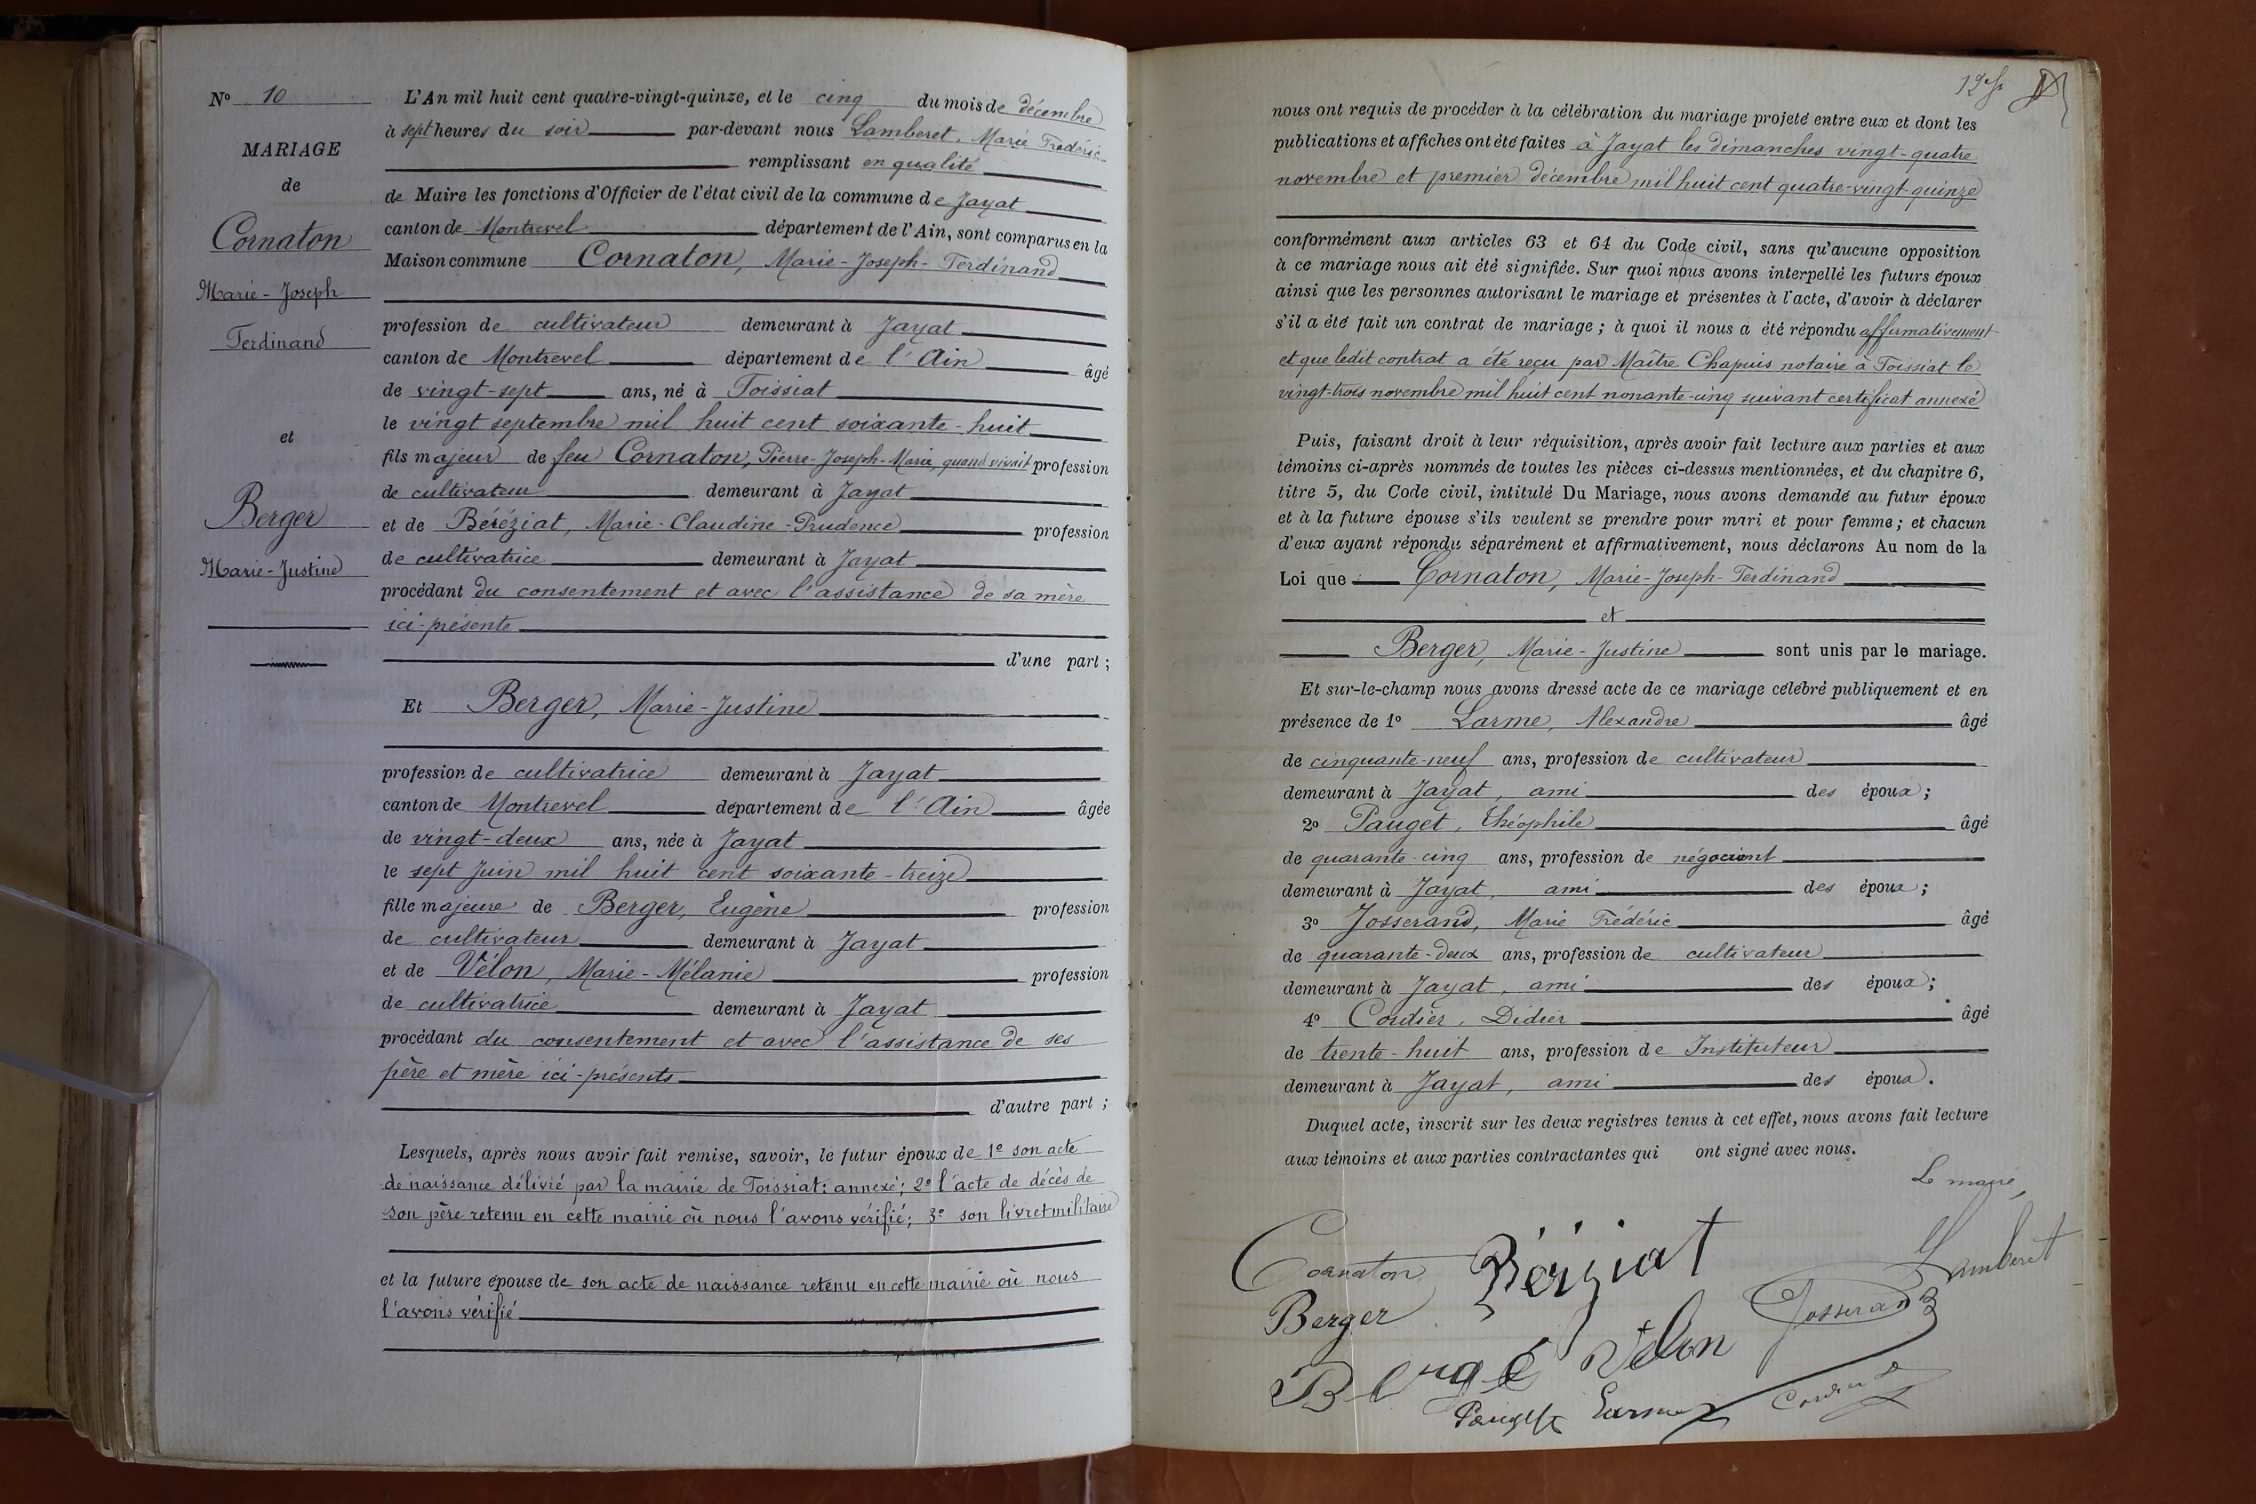 N° 10
MARIAGE
de
Cornaton
Marie-Joseph
Ferdinand
et
Berger
Marie-Justine
L'An mil huit cent quatre-vingt-quinze, et le cinq du mois de décembre
à sept heures du soir par-devant nous Lamberet, Marie Frédéric
remplissant en qualité
de Maire les fonctions d'Officier de l'état civil de la commune de Jayat
canton de Montrevel département de l'Ain, sont comparus en la
Maison commune Cornaton, Marie-Joseph-Ferdinand
profession de cultivateur demeurant à Jayat
canton de Montrevel département de l'Ain âgé
de vingt-sept ans, né à Foissiat
le vingt septembre mil huit cent soixante-huit
fils majeur de feu Cornaton, Pierre-Joseph-Marie, quand vivait profession
de cultivateur demeurant à Jayat
et de Béréziat, Marie-Claudine-Prudence profession
de cultivatrice demeurant à Jayat
procédant du consentement et avec l'assistance de sa mère
ici-présente
d'une part;
Et Berger, Marie-Justine
profession de cultivatrice demeurant à Jayat
canton de Montrevel département de l'Ain âgée
de vingt-deux ans, née à Jayat
le sept Juin mil huit cent soixante-treize
fille majeure de Berger, Eugène profession
de cultivateur demeurant à Jayat
et de Vélon, Marie-Mélanie profession
de cultivatrice demeurant à Jayat
procédant du consentement et avec l'assistance de ses
père et mère ici-présents
d'autre part;
Lesquels, après nous avoir fait remise, savoir, le futur époux de 1° son acte
de naissance délivré par la mairie de Foissiat: annexé; 2° l'acte de décès de
son père retenu en cette mairie où nous l'avons vérifié; 3° son livret militaire
et la future épouse de son acte de naissance retenu en cette mairie où nous
l'avons vérifié
nous ont requis de procéder à la célébration du mariage projeté entre eux et dont les
publications et affiches ont été faites à Jayat les dimanches vingt-quatre
novembre et premier décembre mil huit cent quatre-vingt-quinze
conformément aux articles 63 et 64 du Code civil, sans qu'aucune opposition
à ce mariage nous ait été signifiée. Sur quoi nous avons interpellé les futurs époux
ainsi que les personnes autorisant le mariage et présentes à l'acte, d'avoir à déclarer
s'il a été fait un contrat de mariage; à quoi il nous a été répondu affirmativement
et que ledit contrat a été reçu par Maître Chapuis notaire à Foissiat le
vingt-trois novembre mil huit cent nonante-cinq suivant certificat annexé
Puis, faisant droit à leur réquisition, après avoir fait lecture aux parties et aux
témoins ci-après nommés de toutes les pièces ci-dessus mentionnées, et du chapitre 6,
titre 5, du Code civil, intitulé Du Mariage, nous avons demandé au futur époux
et à la future épouse s'ils veulent se prendre pour mari et pour femme; et chacun
d'eux ayant répondu séparément et affirmativement, nous déclarons Au nom de la
Loi que Cornaton, Marie-Joseph-Ferdinand
et
Berger, Marie-Justine sont unis par le mariage.
Et sur-le-champ nous avons dressé acte de ce mariage célébré publiquement et en
présence de 1° Larme, Alexandre âgé
de cinquante-neuf ans, profession de cultivateur
demeurant à Jayat, ami des époux;
2° Pauget, Théophile âgé
de quarante-cinq ans, profession de négociant
demeurant à Jayat, ami des époux;
3° Josserand, Marie Frédéric âgé
de quarante-deux ans, profession de cultivateur
demeurant à Jayat, ami des époux;
4° Cordier, Didier âgé
de trente-huit ans, profession de Instituteur
demeurant à Jayat, ami des époux.
Duquel acte, inscrit sur les deux registres tenus à cet effet, nous avons fait lecture
aux témoins et aux parties contractantes qui ont signé avec nous.
Le maire,
Lamberet
Cornaton Béréziat
Berger Josserand
Bergé Vélon
Pauget Larme Cordier